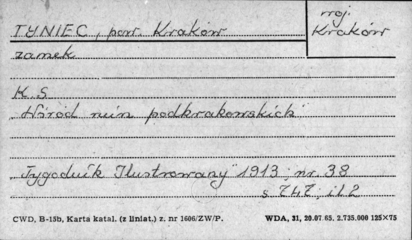 TYNIEC, pow. Kraków
woj.
Kraków
zamek
K. S
"Wśród ruin podkrakowskich"
"Tygodnik Ilustrowany" 1913, nr. 38
s. 747, il. 2
CWD, B-15b, Karta katal. (z liniat.) z. nr 1606/ZW/P.
WDA, 31, 20.07.65, 2.735.000 125×75